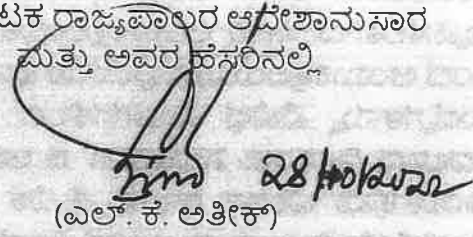 ಟಕ ರಾಜ್ಯಪಾಲರ ಆದೇಶಾನುಸಾರ
ಮತ್ತು ಅವರ ಹೆಸರಿನಲ್ಲಿ
28/10/2022
(ಎಲ್. ಕೆ. ಅತೀಕ್)